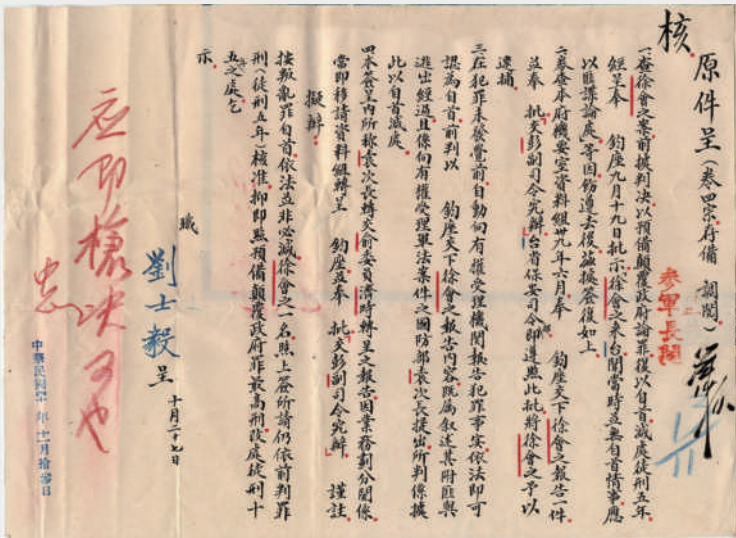 核
原件呈(卷四宗存備 調閱)
參軍長閱
一、查徐會之案前據判決以預備顛覆政府論罪復以自首減處徒刑五年
經呈奉 鈞座九月十九日批示徐會之來台聞當時並無自首情事應
以匪諜論處等因飭遵去後茲據簽復如上
二、卷查本府機要室資料組卅九年六月奉 鈞座交下徐會之報告一件
並奉 批交彭副司令究辦台省保安司令部即遵照此批將徐會之予以
逮捕
三、在犯罪未發覺前自動向有權受理機關報告犯罪事實依法即可
認為自首前判以 鈞座交下徐會之報告內容既屬叙述其附匪與
進出經過且係向有權受理軍法案件之國防部袁次長提出所判係據
此以自首減處
四、本簽呈內所稱袁次長轉交俞委員濟時轉呈之報告因業務劃分關係
當即移請資料組轉呈 鈞座並奉 批交彭副司令究辦 謹註
擬辦:
按叛亂罪自首依法並非必減徐會之一名照上簽所請仍依前判罪
刑(徒刑五年)核准抑即照預備顛覆政府罪最高刑改處徒刑十
五年之處乞
示
職 劉士毅 呈 十月二十七日
應即槍決可也
中華民國 年十一月拾 日